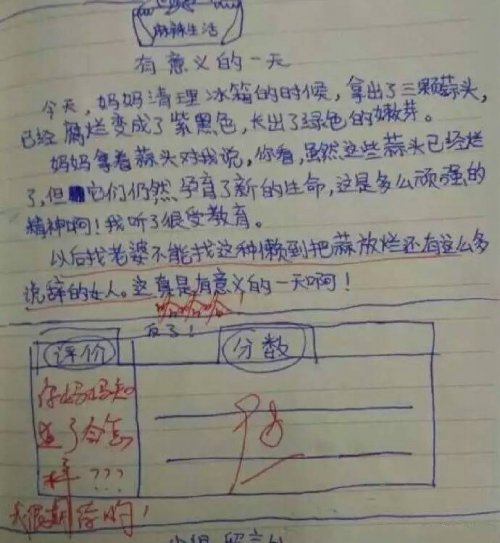 麻辣生活
有意义的一天
今天，妈妈清理冰箱的时候，拿出了三颗蒜头，
已经腐烂变成了紫黑色，长出了绿色的嫩芽。
妈妈拿着蒜头对我说，你看，虽然这些蒜头已经烂
了，但它们仍然孕育了新的生命，这是多么顽强的
精神啊！我听了很受教育。
以后找老婆不能找这种懒到把蒜放烂还有这么多
说辞的女人。这真是有意义的一天啊！
哈哈哈！
反了！
评价
分数
你妈妈知
道了会怎
样???
优